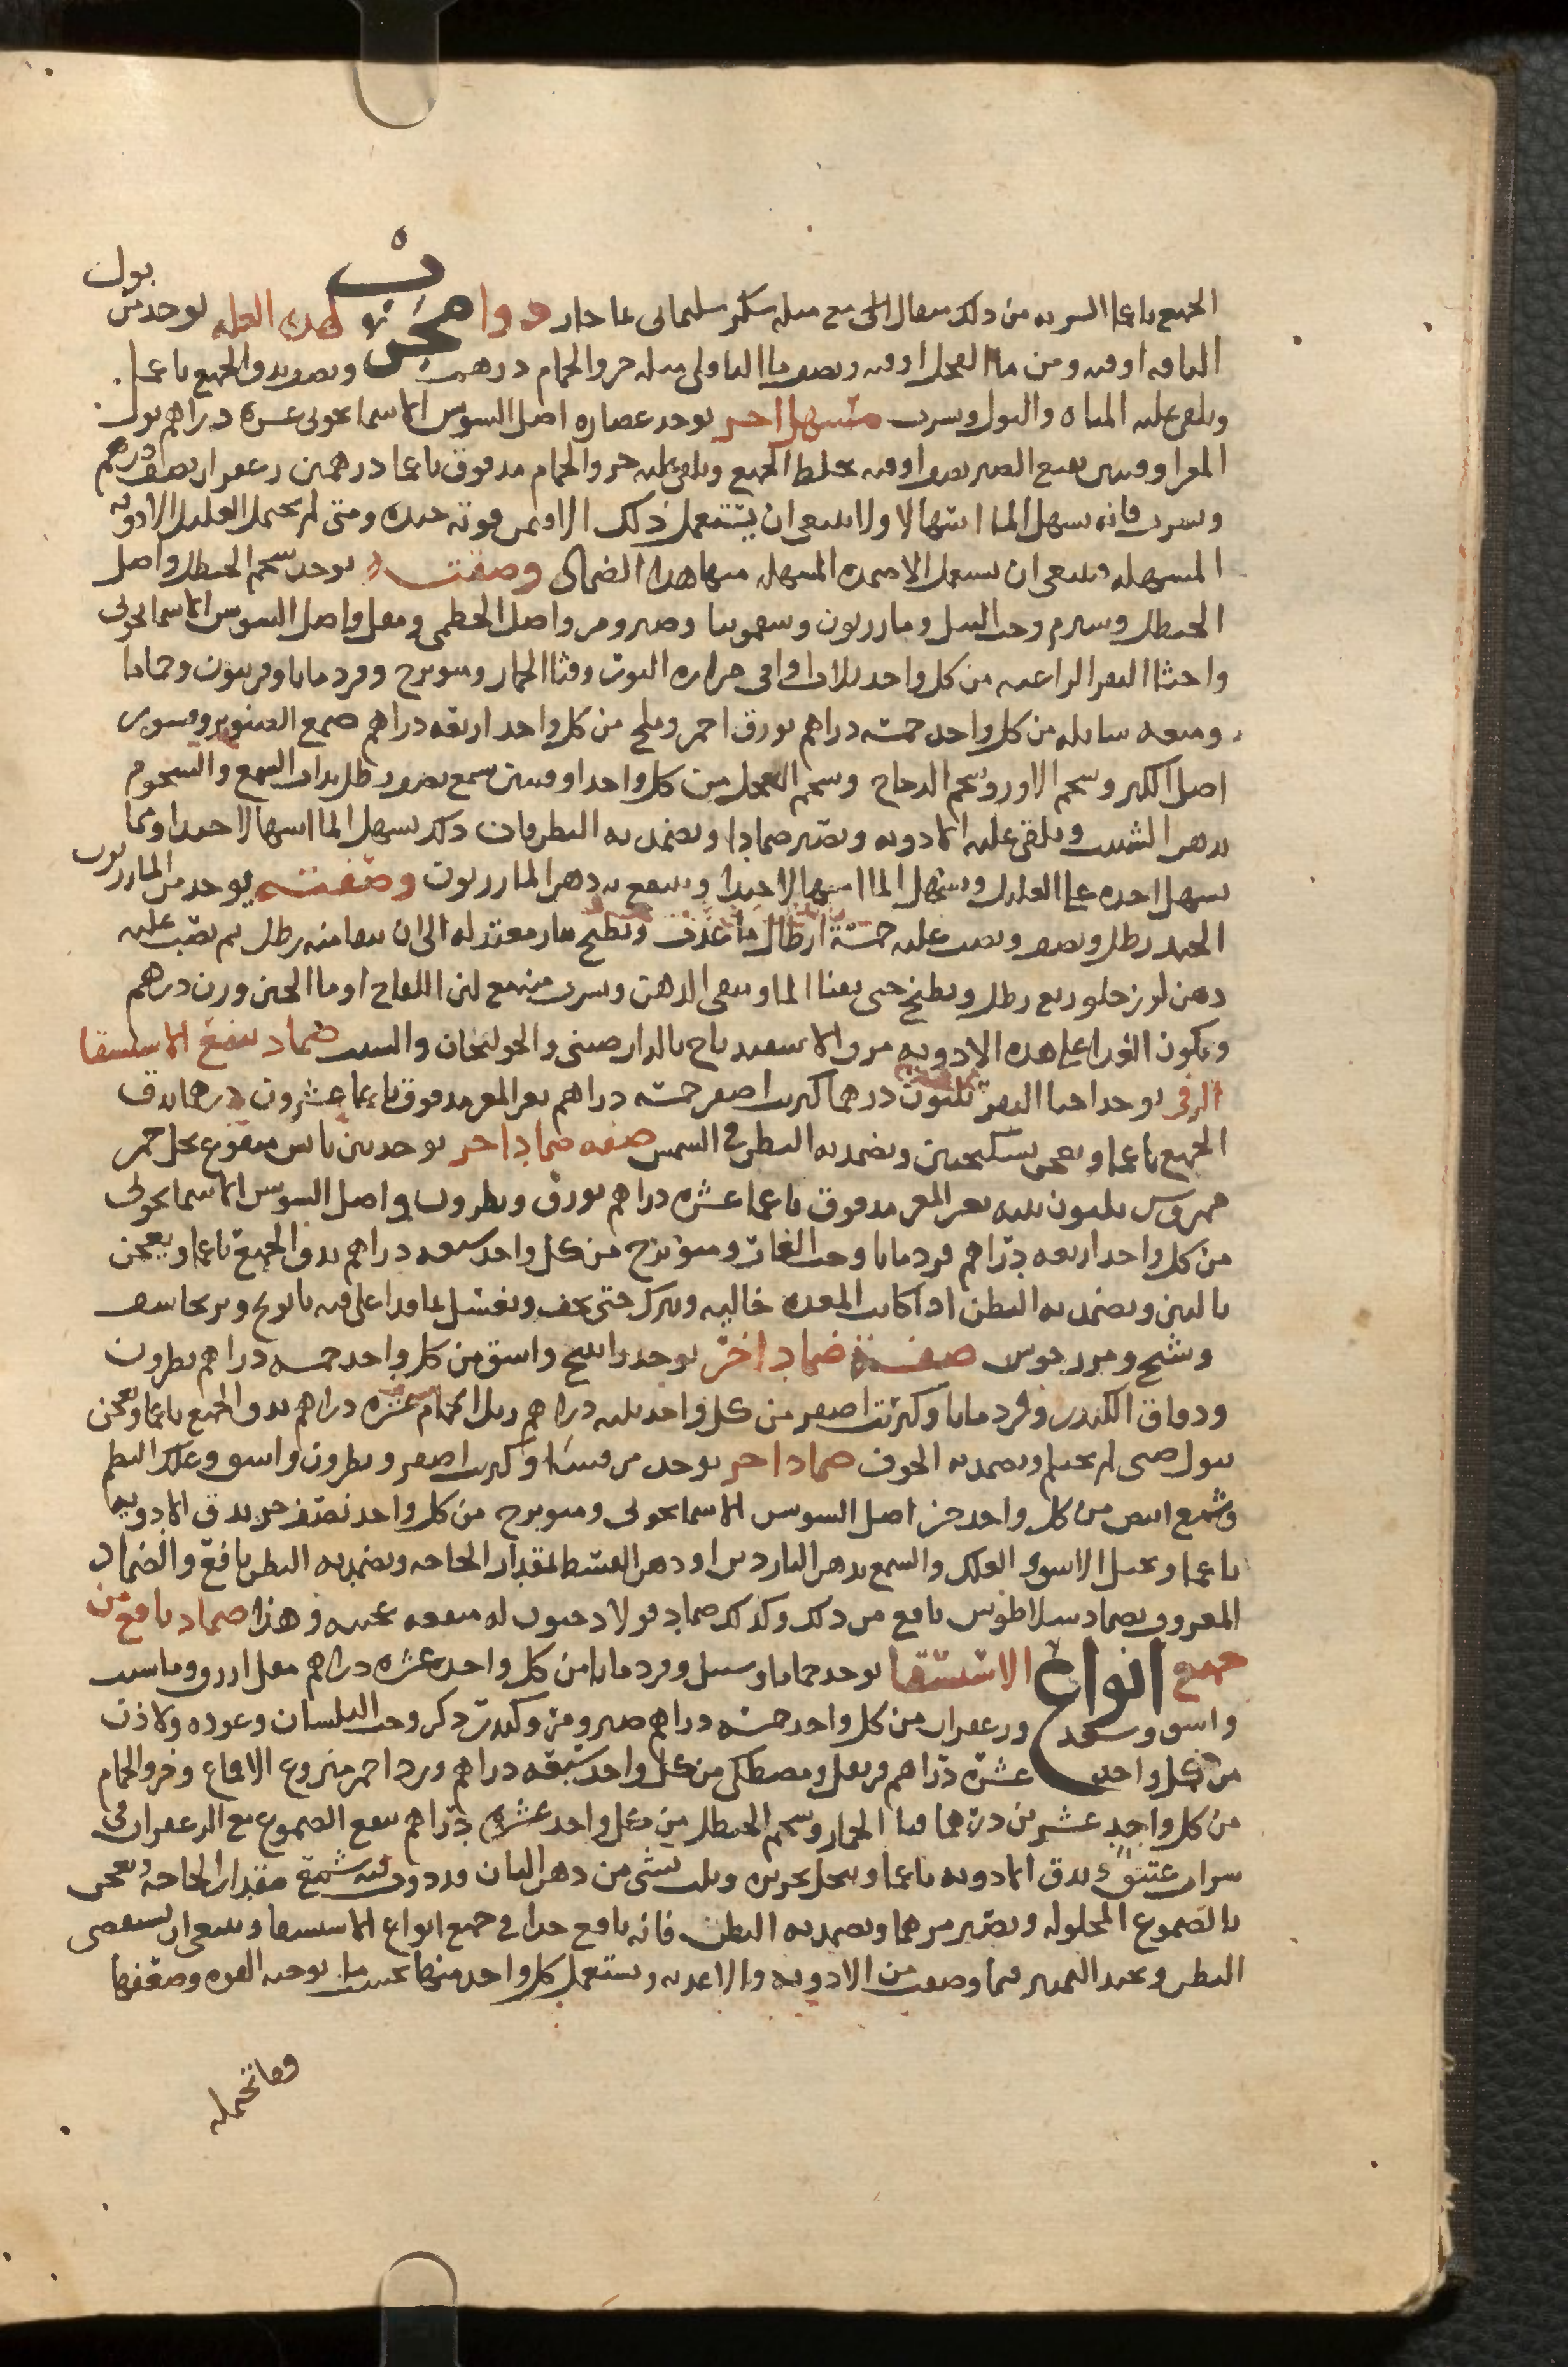 الجميع ناعما الشربه من ذلك مثقال الى مع مثله سكر سليمانى بما حار دوا مجرب لهذه العله يوخذ من بول
الناقه اوقيه ومن ما الفجل اوقيه ونصف ما الباقلى مثله خرو الحمام درهمين ونصف يدق الجميع ناعما
ويلقى عليه المياه والبول ويشرب مسهل اخر يوخذ عصاره اصل السوسن الاسمانجونى عشره دراهم بول
المعز اوقيتين نقيع الصبر نصف اوقيه يخلط الجميع ويلقى عليه خرو الحمام مدقوق ناعما درهمين زعفران نصف درهم
ويشرب فانه يسهل الما اسهالا ولا ينبغى ان يستعمل ذلك الا من قوته جيده ومتى لم يحتمل العليل الادويه
المسهله فينبغى ان يستعمل الاضمده المسهله منها هذا الضماد وصفته يوخذ شحم الحنظل واصل
الحنظل وشبرم وحب النيل ومازريون وسقمونيا وصبر ومر واصل الخطمى ومقل واصل السوسن الاسمانجونى
واخثا البقر الراعيه من كل واحد ثلاث اواقى مراره الثور وقثا الحمار وميويزج وقردمانا وفربيون وحماما
وميعه سايله من كل واحد خمسه دراهم بورق احمر وملح من كل واحد اربعه دراهم صمع الصنوبر وقشور
اصل الكبر وشحم الاوز وشحم الدجاج وشحم العجل من كل واحد اوقيتين شمع نصف رطل يذاب الشمع والشحوم
بدهن الشبت ويلقى عليه الادويه ويصير ضمادا ويضمد به البطن فان ذلك يسهل الما اسهالا جيدا وبما
يسهل اخذه على العليل ويسهل الما اسهالا جيدا وينتفع به دهن المازريون وصفته يوخذ من المازريون
الجيد رطل ونصف ويصب عليه خمسة ارطال ما عذب ويطبخ بنار معتدله الى ان يبقا منه رطل ثم يصب عليه
دهن لوز حلو ربع رطل ويطبخ حتى يفنا الما ويبقى الدهن ويشرب منه مع لبن اللقاح او ما الجبن وزن درهم
ويكون الغذا على هذه الادويه مرق الاسفيدباج بالدارصينى والخولنجان والشبت ضماد ينفع الاستسقا
الزقى يوخذ اخثا البقر ثلثون درهما كبريت اصفر خمسه دراهم بعر المعز مدقوق ناعما عشرون درهما يدق
الجميع ناعما ويعجن بسكنجبين ويضمد به البطن فى الشمس صفه ضماد اخر يوخذ تين يابس منقوع بخل خمر
مهروس ثلثون تينه بعر المعز مدقوق ناعما عشره دراهم بورق ونطرون واصل السوسن الاسمانجونى
من كل واحد اربعه دراهم قردمانا وحب الغار وميويزج من كل واحد سبعه دراهم يدق الجميع ناعما ويعجن
بالتين ويضمد به البطن اذا كانت المعده خاليه ويترك حتى يجف ويغسل بما قد اغلى فيه بابونج وبرنجاسف
وشيح ومرزنجوش صفة ضماد اخر يوخذ راتينج واشق من كل واحد خمسه دراهم نطرون
ودقاق الكندر وقردمانا وكبريت اصفر من كل واحد ثلثه دراهم زبل الحمام عشره دراهم يدق الجميع ناعما ويعجن
ببول صبى لم يحتلم ويضمد به الجوف ضماد اخر يوخذ مرقشيثا وكبريت اصفر ونطرون واشق وعلك البطم
وشمع ابيض من كل واحد جز اصل السوسن الاسمانجونى وميويزج من كل واحد نصف جز يدق الادويه
ناعما ويحل الاشق والعلك والشمع بدهن الناردين او دهن القسط بمقدار الحاجه ويضمد به البطن نافع والضماد
المعروف بضماد سلاطوس نافع من ذلك وكذلك ضماد فولادحيوس له منفعه عجيبه وهذا ضماد نافع من
جميع انواع الاستسقا يوخذ حماما وسنبل وقردمانا من كل واحد عشره دراهم مقل ازرق وماسست
واشق وسعد وزعفران من كل واحد خمسه دراهم صبر ومر وكندر ذكر وحب البلسان وعوده ولاذن
من كل واحد عشرة دراهم قرنفل ومصطكى من كل واحد سبعه دراهم ورد احمر منزوع الاقماع وخرو الحمام
من كل واحد عشرين درهما قثا الحمار وشحم الحنظل من كل واحد عشره دراهم ينقع الصموغ مع الزعفران فى
شراب عتيق يدق الادويه ناعما وينخل بحريره ويلت بشى من دهن البان ويذوب شمع مقدار الحاجه ويعجن
بالصموغ المحلوله ويصير مرهما ويضمد به البطن فانه نافع جدا فى جميع انواع الاستسقا وينبغى ان يستقصى
النظر ويجيد التمييز فيما وصفت من الادويه والاغذيه ويستعمل كل واحد منها بحسب ما يوجبه القوه وضعفها
وما تحمله